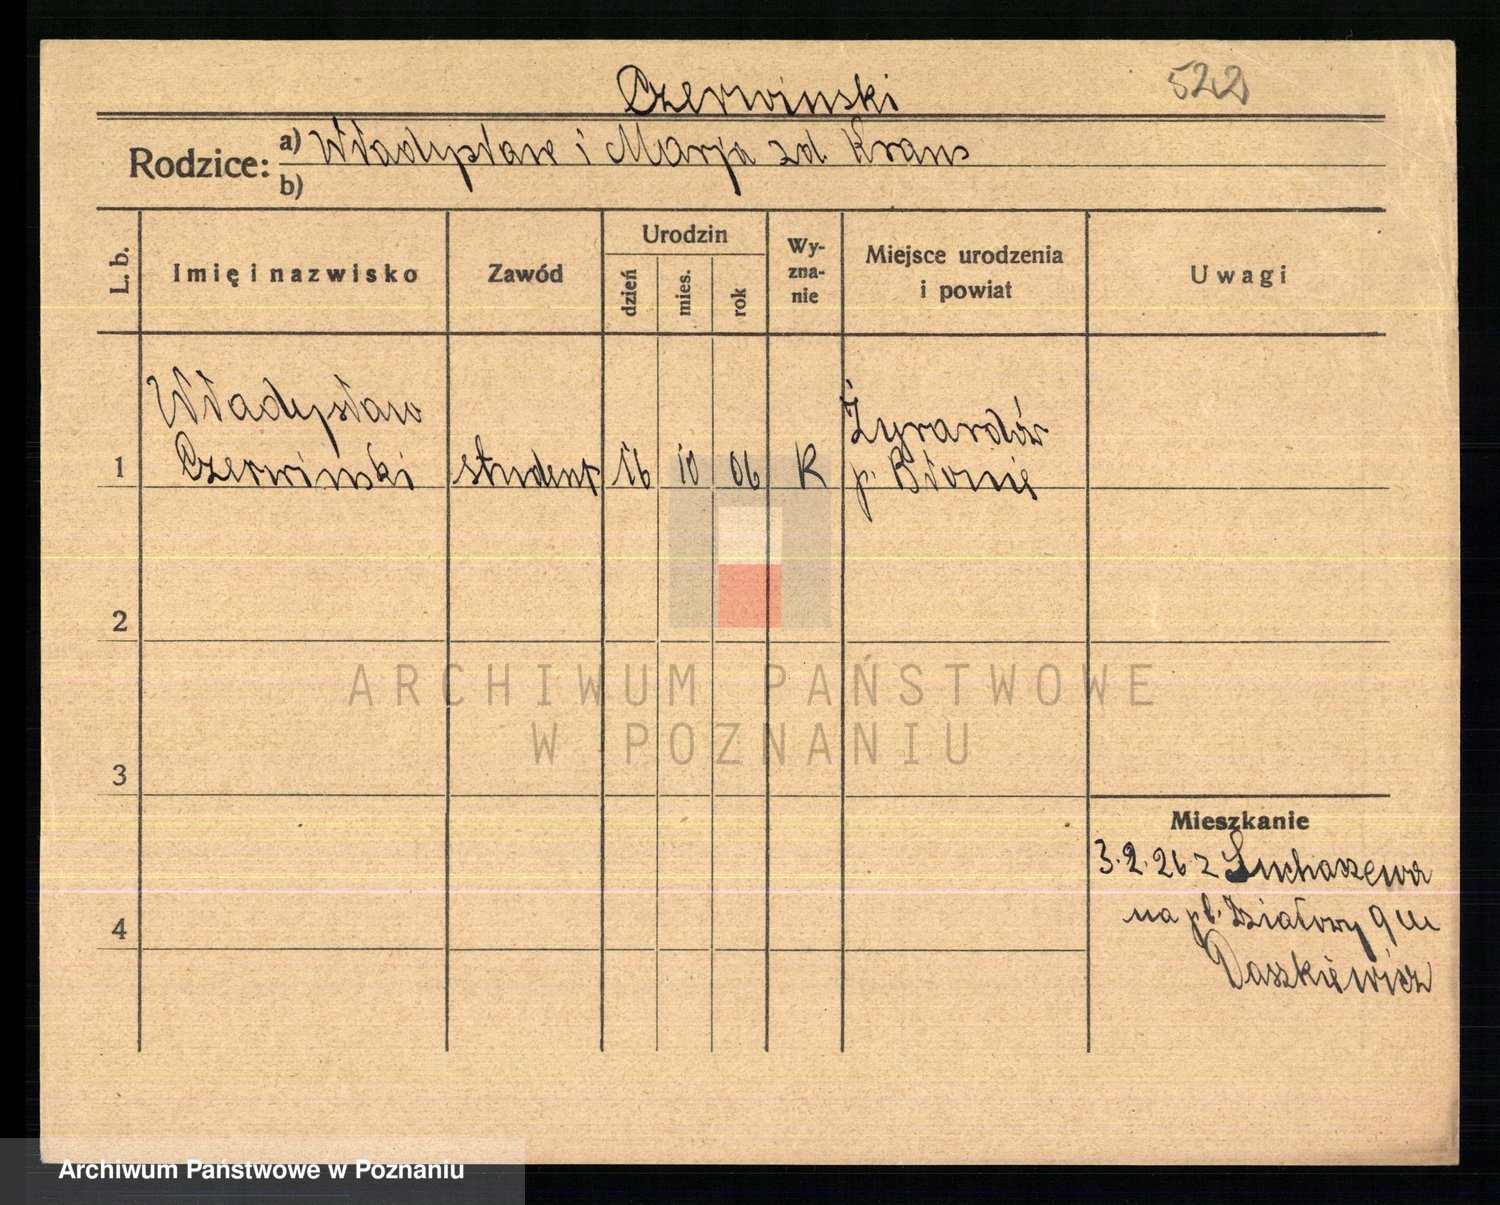 Czerwinski
522
Rodzice:
a) Władysław i Marja zd. Krans
b)
L. b.
Imię i nazwisko
Zawód
Urodzin
dzień
mies.
rok
Wy-
zna-
nie
Miejsce urodzenia
i powiat
Uwagi
Władysław
1 Czerwiński student 16 10 06 R
Żyrardów
p. Błonie
2
3
4
Mieszkanie
3.2.26 z
na pl. Działowy 9 III
Daszkiewicz
ARCHIWUM PAŃSTWOWE
W POZNANIU
Archiwum Państwowe w Poznaniu